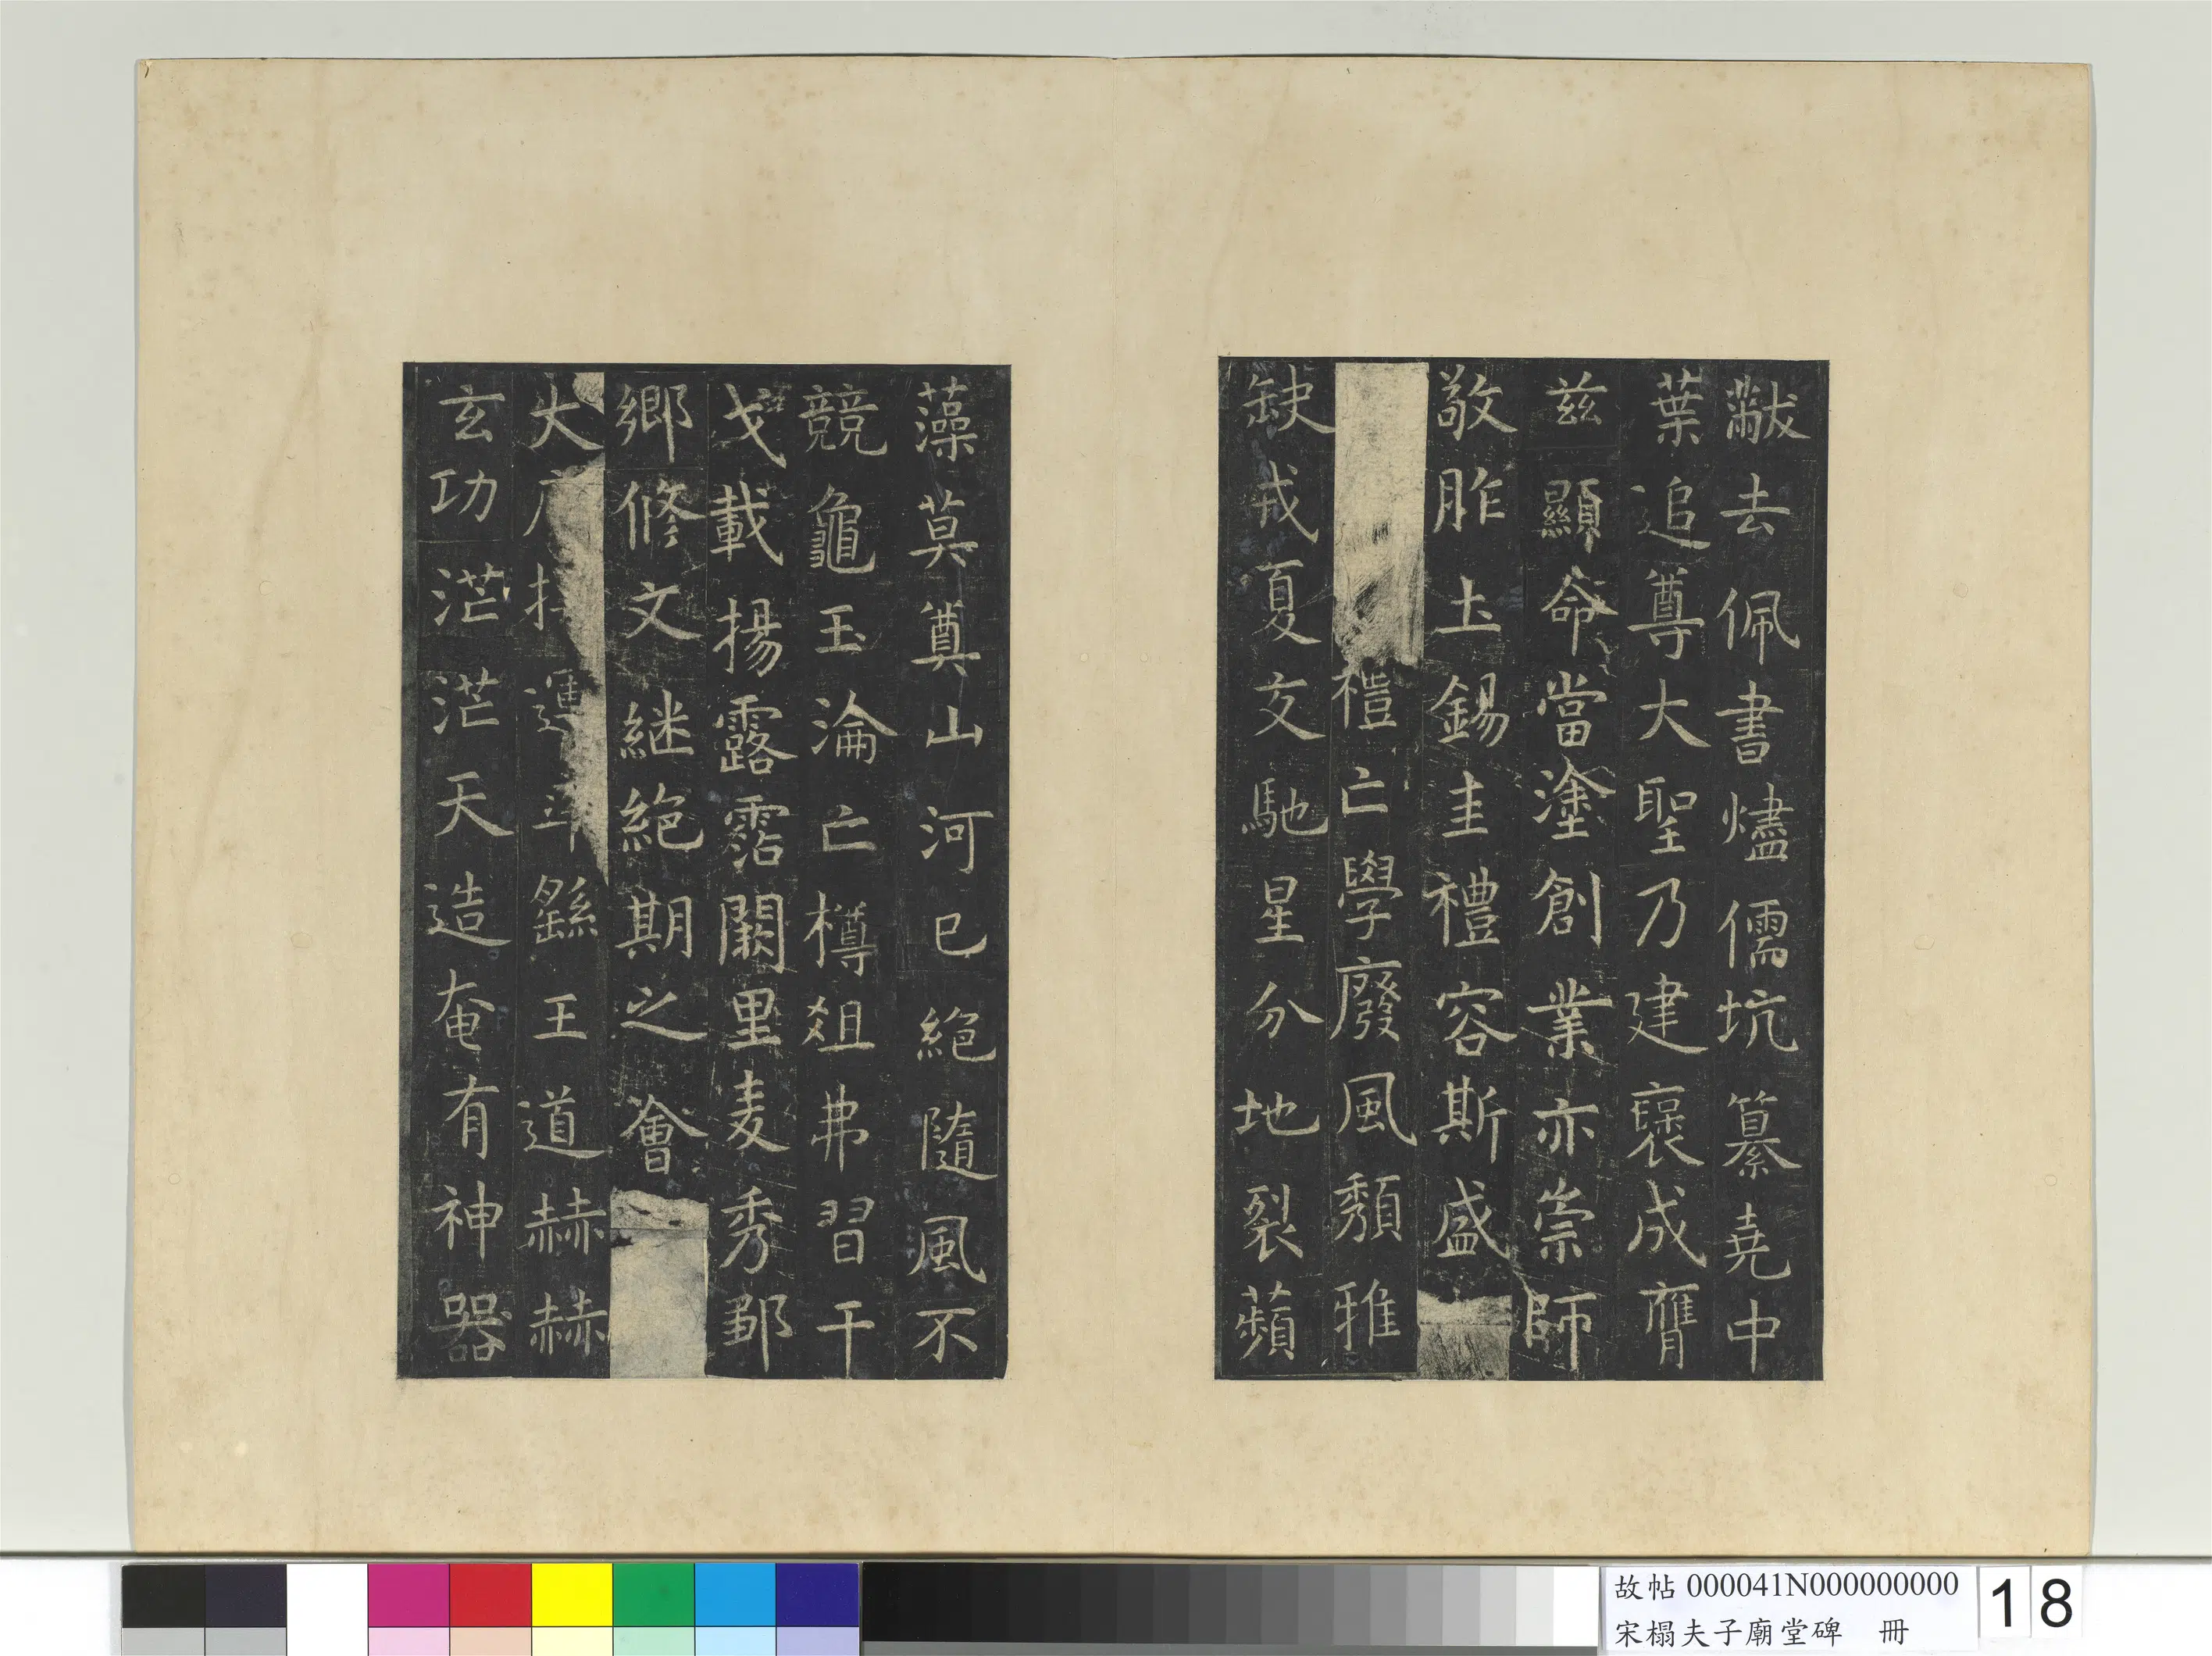 黻去佩書燼儒坑纂堯中
葉追尊大聖乃建褒成膺
兹顯命當塗創業亦崇師
敬胙土錫圭禮容斯盛
禮亡學廢風頹雅
缺戎夏交馳星分地裂蘋
藻莫奠山河已絕隨風不
競龜玉淪亡樽俎弗習干
戈載揚露霑闕里麦秀鄒
鄉修文継絕期之會
大 運斗繇王道赫赫
玄功茫茫天造奄有神器
故帖 000041N000000000
宋榻夫子廟堂碑 冊
18